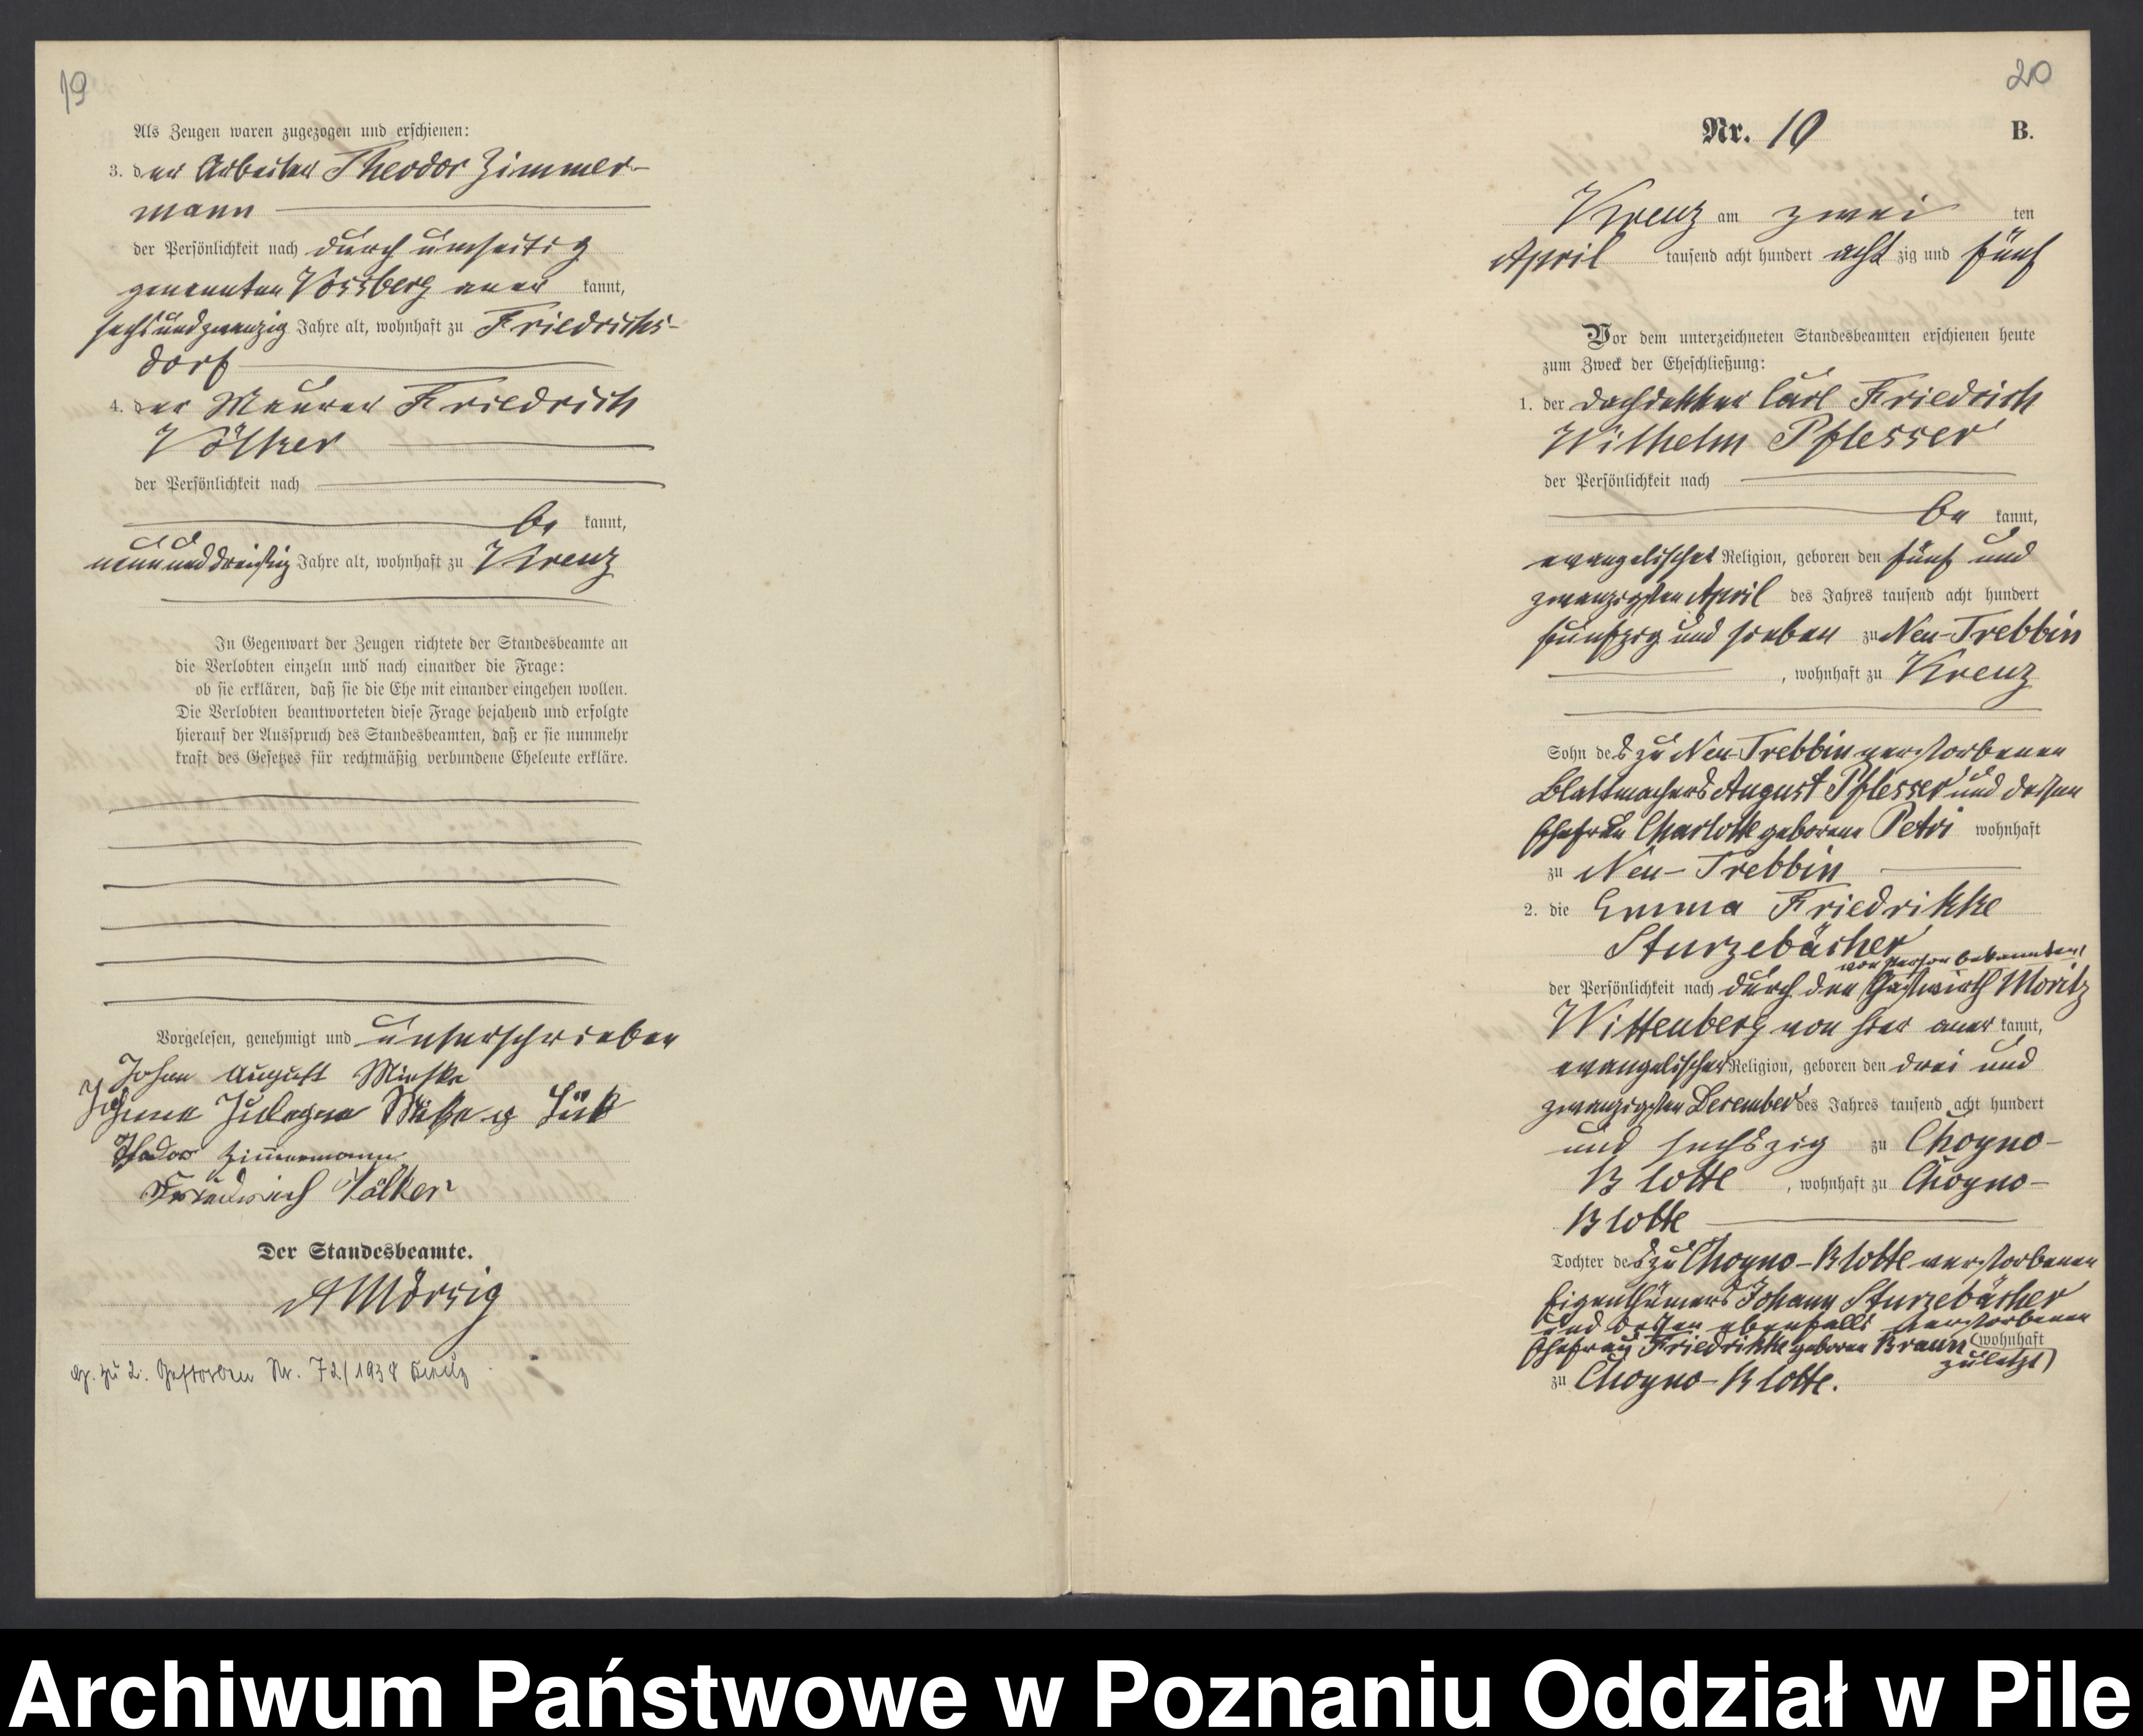 19
Als Zeugen waren zugezogen und erschienen:
3. der Arbeiter Theodor Zimmer-
mann
der Persönlichkeit nach durch umseitig
genannten Vossberg aner kannt,
sechsundzwanzig Jahre alt, wohnhaft zu Friedrichs-
dorf
4. der Maurer Friedrich
Völker
der Persönlichkeit nach
be kannt,
neununddreißig Jahre alt, wohnhaft zu Kreuz
In Gegenwart der Zeugen richtete der Standesbeamte an
die Verlobten einzeln und nach einander die Frage:
ob sie erklären, daß sie die Ehe mit einander eingehen wollen.
Die Verlobten beantworteten diese Frage bejahend und erfolgte
hierauf der Ausspruch des Standesbeamten, daß er sie nunmehr
kraft des Gesetzes für rechtmäßig verbundene Eheleute erkläre.
Vorgelesen, genehmigt und unterschrieben
Johan August
Theodor Zimmermann
Friedrich Völker
Der Standesbeamte.
zu 2. Gestorben Nr. 72/1938 Kreuz
20
Nr. 10 B.
Kreuz am zwei ten
April tausend acht hundert acht zig und fünf
Vor dem unterzeichneten Standesbeamten erschienen heute
zum Zweck der Eheschließung:
1. der Dachdekker Carl Friedrich
Wilhelm Pflesser
der Persönlichkeit nach
be kannt,
evangelischer Religion, geboren den fünf und
zwanzigsten April des Jahres tausend acht hundert
fünfzig und sieben zu Neu-Trebbin
, wohnhaft zu Kreuz
Sohn des zu Neu-Trebbin verstorbenen
Blattmachers August Pflesser und dessen
Ehefrau Charlotte geborene Petri wohnhaft
zu Neu-Trebbin
2. die Emma Friedrikke
Sturzebächer
von Person bekannten
der Persönlichkeit nach durch den Gastwirth Moritz
Wittenberg von hier aner kannt,
evangelischer Religion, geboren den drei und
zwanzigsten December des Jahres tausend acht hundert
und sechszig zu Choyno-
Blotte, wohnhaft zu Choyno-
Blotte
Tochter des zu Choyno-Blotte verstorbenen
Eigenthümers Johann Sturzebächer
und dessen ebenfalls verstorbenen
Ehefrau Friedrikke geboren Braun (wohnhaft
zuletzt)
zu Choyno-Blotte.
Archiwum Państwowe w Poznaniu Oddział w Pile